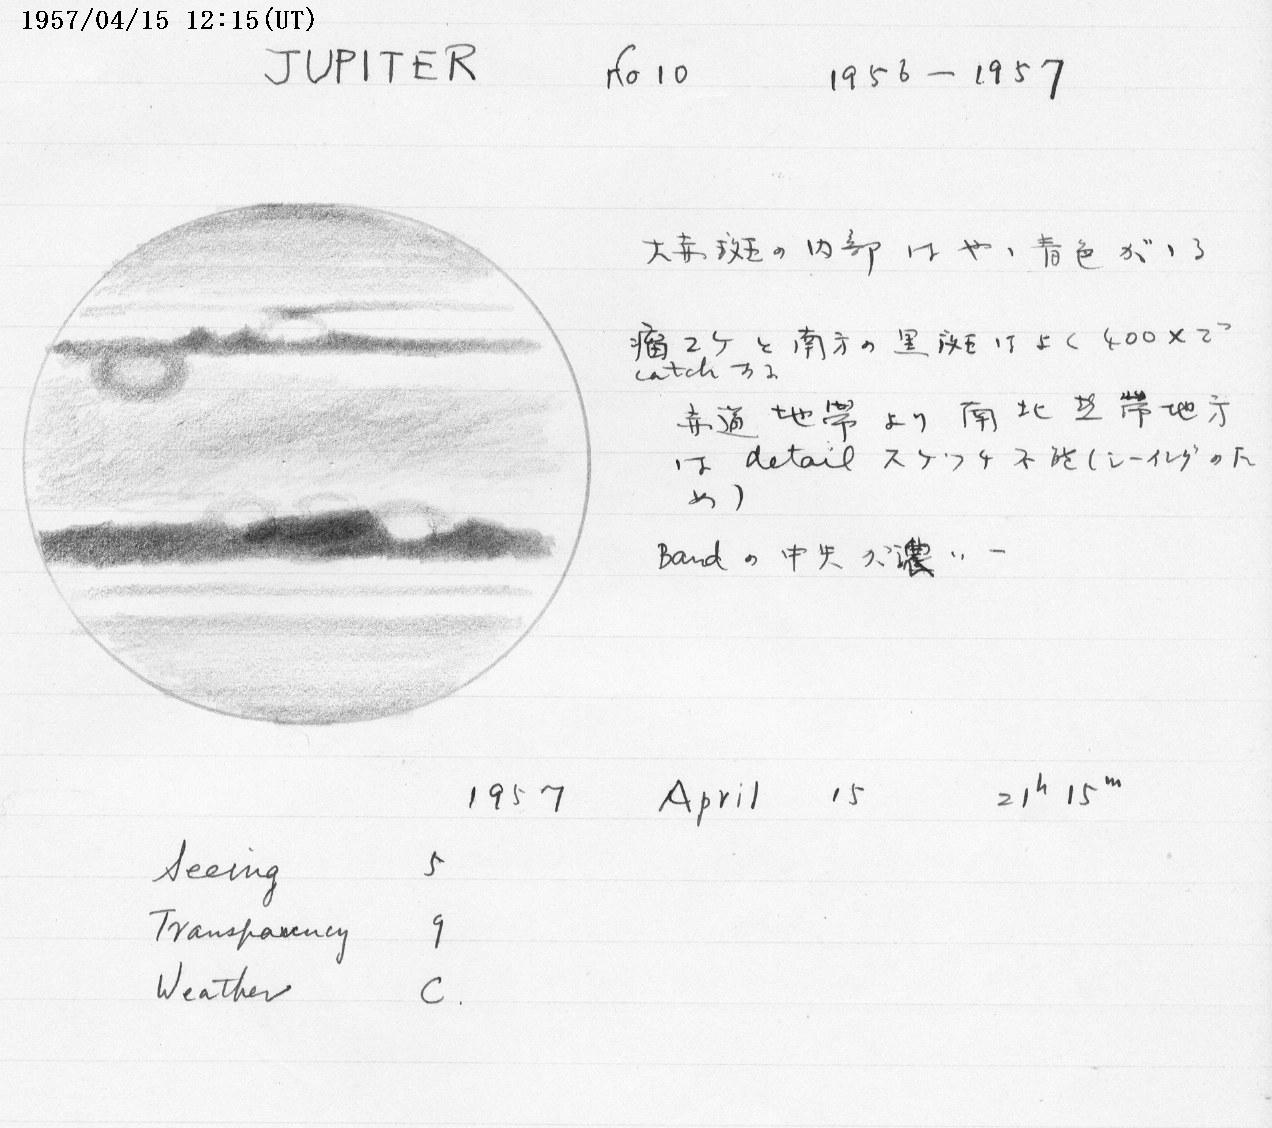 1957/04/15 12:15(UT)
JUPITER No 10 1956-1957
大赤斑の内部はやゝ青色がゝる
瘤2ケと南方の黒斑はよく400×で
catchする
赤道地帯より南北 帯地方
は detail スケッチ不能(シーイングのた
め)
Bandの中央が濃いー
1957 April 15 21h 15m
Seeing 5
Transparency 9
Weather C.